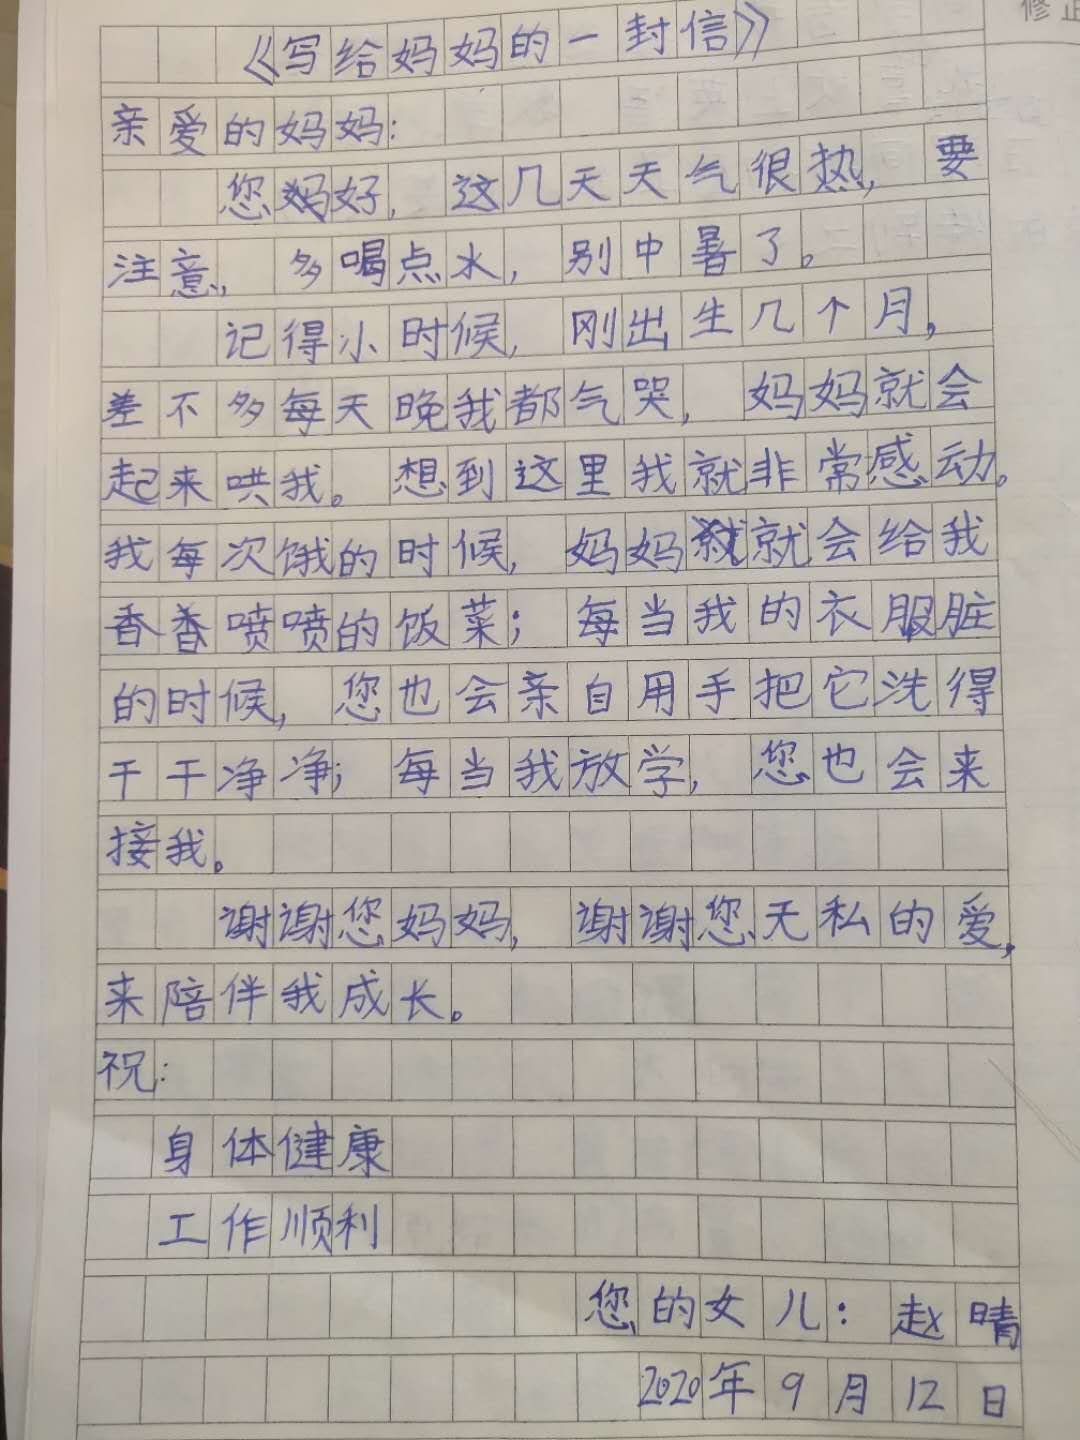 修正
《写给妈妈的一封信》
亲爱的妈妈：
您好，这几天天气很热，要
注意，多喝点水，别中暑了。
记得小时候，刚出生几个月，
差不多每天晚我都气哭，妈妈就会
起来哄我。想到这里我就非常感动。
我每次饿的时候，妈妈就会给我
香香喷喷的饭菜；每当我的衣服脏
的时候，您也会亲自用手把它洗得
干干净净；每当我放学，您也会来
接我。
谢谢您妈妈，谢谢您无私的爱，
来陪伴我成长。
祝：
身体健康
工作顺利
您的女儿：赵晴
2020年9月12日